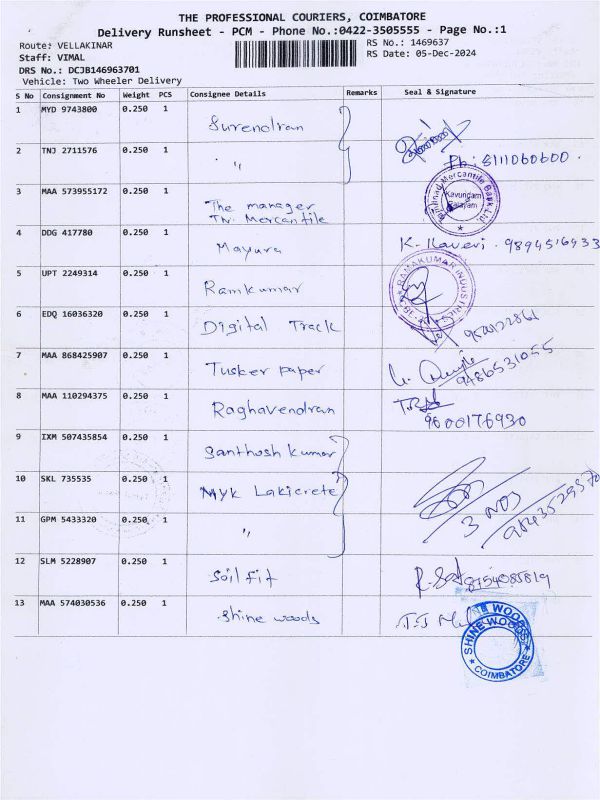 THE PROFESSIONAL COURIERS, COIMBATORE
Delivery Runsheet - PCM - Phone No.:0422-3505555 - Page No.:1
Route: VELLAKINAR
RS No.: 1469637
Staff: VIMAL
RS Date: 05-Dec-2024
DRS No.: DCJB146963701
Vehicle: Two Wheeler Delivery
S No Consignment No Weight PCS Consignee Details Remarks Seal & Signature
1 MYD 9743800 0.250 1 Surendran
2 TNJ 2711576 0.250 1 " Ph: 8111060600.
3 MAA 573955172 0.250 1 The manager
TN. Mercantile
Tamilnad Mercantile Bank Ltd.
Kavundam
Palayam
4 DDG 417780 0.250 1 Mayura K. Kaveri. 9894516933
5 UPT 2249314 0.250 1 Ramkumar
RAMAKUMAR INDUSTRIES
6 EDQ 16036320 0.250 1 Digital Track
7 MAA 868425907 0.250 1 Tusker paper 9486531055
8 MAA 110294375 1 0.250 Raghavendran
9600176930
9 IXM 507435854 0.250 1 Santhosh kumar
10 SKL 735535 0.250 1 MYK Lakicrete 3 NOS
11 GPM 5433320 0.250 1 "
12 SLM 5228907 0.250 1 Soil fit 8754085819
13 MAA 574030536 0.250 1 Shine woods
SHINE WOODS
COIMBATORE